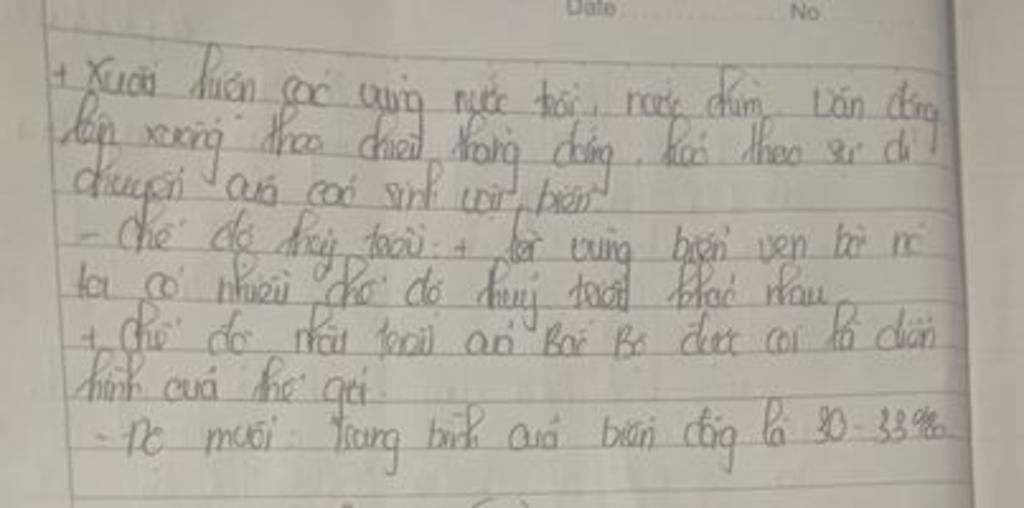 Date No
+ Xuất hiện các vùng nước trồi, nước chìm, vận động
lên xuống theo chiều thẳng đứng, kéo theo sự di
chuyển của các sinh vật biển
- Chế độ thuỷ triều: + tại vùng biển ven bờ nc
ta có nhiều chế độ thuỷ triều khác nhau
+ chế độ nhật triều ở Bắc Bộ được coi là điển
hình của thế giới.
- Độ muối: Trung bình của biển đông là 30-33‰